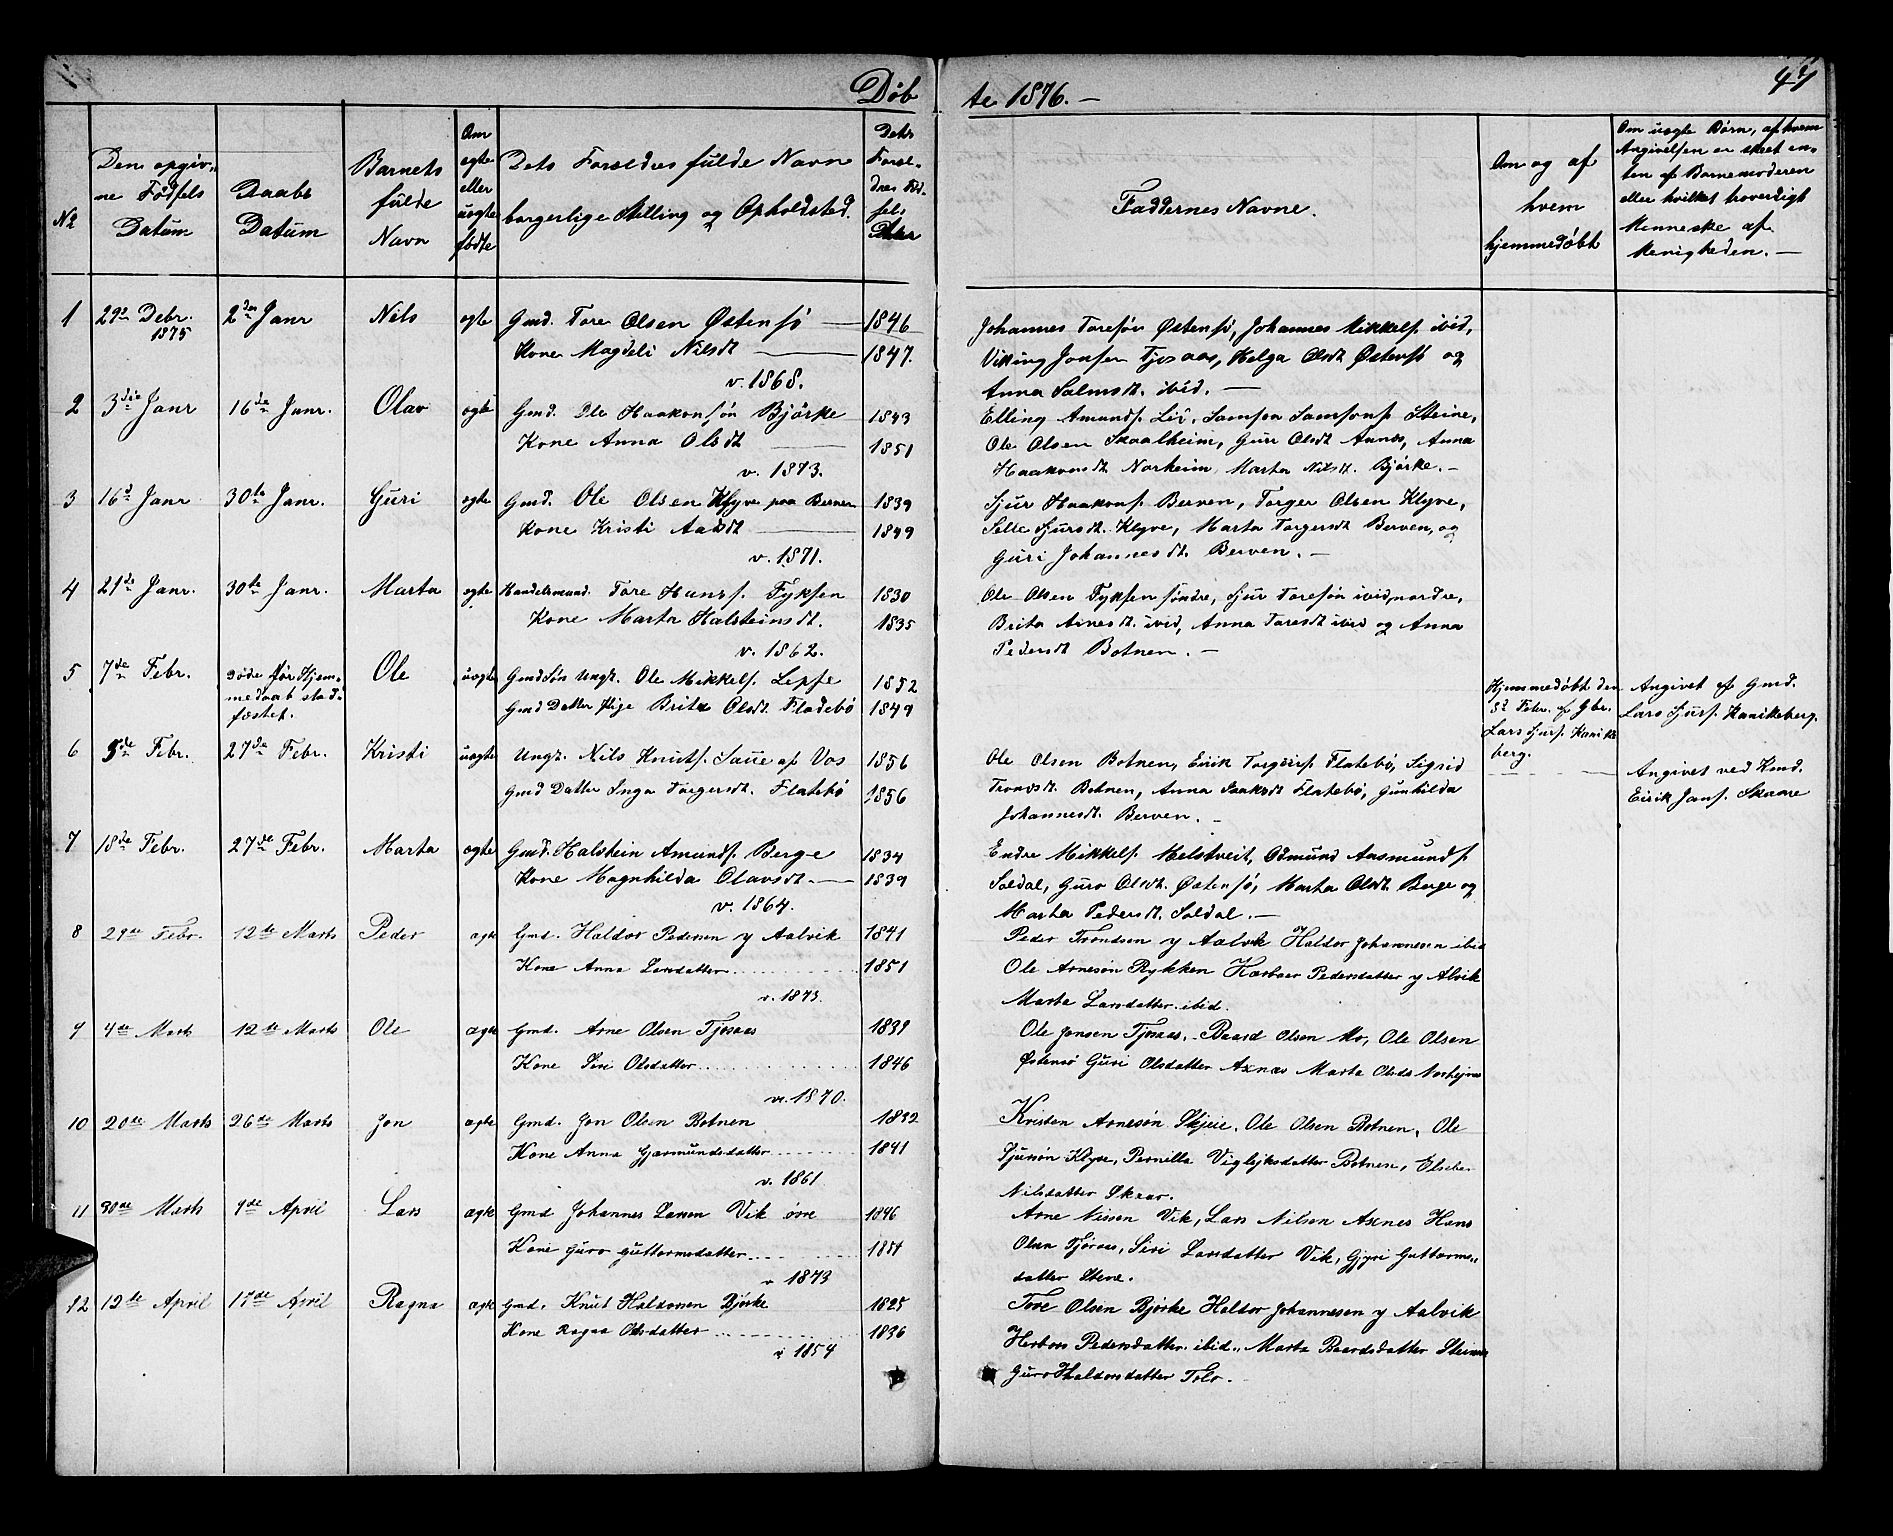 Døb
te 1876. —
47
No
Den opgiv-
ne Fødsels
Datum
Daabs
Datum
Barnets
fulde
Navn
Om
ægte
eller
uægte
fødte
Dets Forældres fulde Navne
borgerlige Stilling og Opholdsted.
Dets
Foræl-
dres Fød-
sels
Faddernes Navne.
Om og af
hvem
hjemmedøbt
Om uægte Børn, af hvem
Angivelsen er skeet en-
ten af Barnemoderen
eller hvilket troverdigt
Menneske af
Menigheden. —
1 29de Debr. 1875 2den Janr Nils ægte Gmd. Tore Olsen Østensø — 1846
Kone Magdeli Nilsdt — 1847.
v. 1868.
Johannes Toresøn Østensø, Johannes Mikkels. ibid,
Viking Jonsen Tjosaas, Helga Olsdt Østensø og
Anna Salmsdt. ibid. —
2 3die Janr 16de Janr. Olav ægte Gmd. Ole Haakonsøn Bjørke 1843
Kone Anna Olsdt — 1851
v. 1873.
Elling Amunds. Lid, Samson Samsons. Steine,
Ole Olsen Skaalheim, Guri Olsdt Axnes, Anna
Haakonsdt Norheim, Marta Nilsdt. Bjørke. —
3 16de Janr 30te Janr. Guri ægte Gmd. Ole Olsen Klyve paa Berven 1839
Kone Kristi — 1849
v. 1871.
Sjur Haakons. Berven, Torger Olsen Klyve,
Sjursdt. Klyve, Marta Torgersdt Berven, og
Guri Johannesdt. Berven. —
4 21de Janr. 30te Janr. Marta ægte Handelsmand. Tore Hans. Fyksen 1830
Kone Marta Halsteinsdt. 1835
v. 1862.
Ole Olsen Fyksen søndre, Sjur Toresøn ibid nordre,
Brita Arnesdt. ibid, Anna Toresdt ibid og Anna
Pedersdt Botnen. —
5 7de Febr. Døde før Hjem-
medaab stad-
fæstet.
Ole uægte Gmdsøn Ungk. Ole Mikkels. Lepse 1852
Gmd Datter Pige Brita Olsdt. Fladebø 1849
Hjemmedøbt den
8de Febr. af Gbr.
Lars Sjurs. Kanike
berg.
Angivet af Gmd.
Lars Sjurs. Kanikeberg.
6 5de Febr. 27de Febr. Kristi uægte Ungk. Nils Knuts. Saue af Vos 1856
Gmd Datter Inga Torgersdt. Flatebø 1856
Ole Olsen Botnen, Eirik Torgers. Flatebø, Sigrid
Trondsdt. Botnen, Anna Isaksdt Flatebø, Gunhilda
Johannesdt. Berven. —
Angivet ved Kmd.
Eirik Jans. Skaare
7 18de Febr. 27de Febr. Marta ægte Gmd. Halstein Amunds. Berge 1834
Kone Magnhilda Olavsdt. — 1839
v. 1864.
Endre Mikkels. Melstveit, Odmund Aasmunds.
Soldal, Guro Olsdt. Østensø, Marta Olsdt Berge og
Marta Pedersdt. Soldal. —
8 29de Febr. 12te Marts Peder ægte Gmd. Haldor Pedersen y Aalvik 1841
Kone Anna Larsdatter 1851
v. 1873.
Peder Trondsen y Aalvik Haldor Johannesen ibid
Ole Arnesøn Rykken Herbaar Pedersdatter y Alvik
Marta Larsdatter ibid.
9 4de Marts 12te Marts Ole ægte Gmd. Arne Olsen Tjosaas 1839
Kone Siri Olsdatter 1846
v. 1870.
Ole Jonsen Tjosaas, Baard Olsen Mo, Ole Olsen
Østensø Guri Olsdatter Axnæs Marta Olsda
10 20de Marts 26de Marts Jon ægte Gmd. Jon Olsen Botnen 1832
Kone Anna Gjermundsdatter 1841
v. 1861
Kristen Arnesøn Skjeie, Ole Olsen Botnen, Ole
Sjursøn Klyve, Pernilla Viglejksdatter Botnen,
Nilsdatter Skaar.
11 30de Marts 9de April Lars ægte Gmd Johannes Larsen Vik øvre 1846
Kone Guro Guttormsdatter 1851
v 1873
Arne Nissen Vik, Lars Nilsen Axnes Hans
Olsen Tjosaas, Siri Larsdatter Vik, Gjyri Guttorms-
datter Stene.
12 12te April 17de April Ragna ægte Gmd. Knut Haldorsen Bjørke 1825
Kone Ragna Olsdatter 1836
v 1854
Tore Olsen Bjørke Haldor Johannesen y Aalvik
Herbor Pedersdatter ibid., Marta Baardsdatter Steine
Guro Haldorsdatter Tolo.